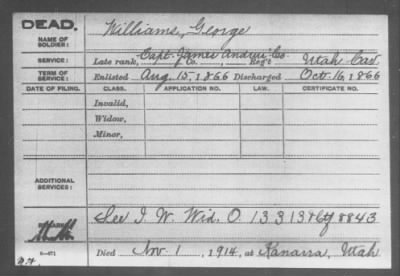 DEAD.
NAME OF SOLDIER: Williams, George
SERVICE: Capt. James Andrus' Co. Late rank, Co., Reg't Utah Cav
TERM OF SERVICE: Enlisted Aug. 15, 1866 Discharged Oct. 16, 1866
DATE OF FILING. CLASS. APPLICATION NO. LAW. CERTIFICATE NO.
Invalid,
Widow,
Minor,
ADDITIONAL SERVICES:
See I. W. Wid. O. 1331386
REMARKS:
Died Nov. 1, 1914, at Kanarra, Utah